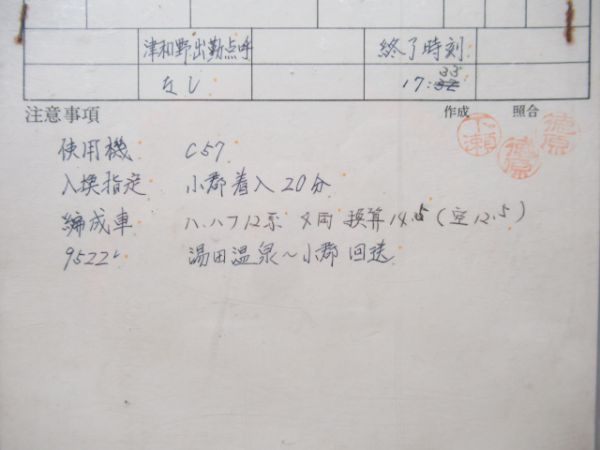 津和野出勤点呼 終了時刻
なし 17:33
注意事項 作成 照合
使用機 C57
入換指定 小郡着入20分
編成車 ハ.ハフ12系 4両 換算14.5(空12.5)
9522レ 湯田温泉~小郡 回送
下瀬 徳原 徳原